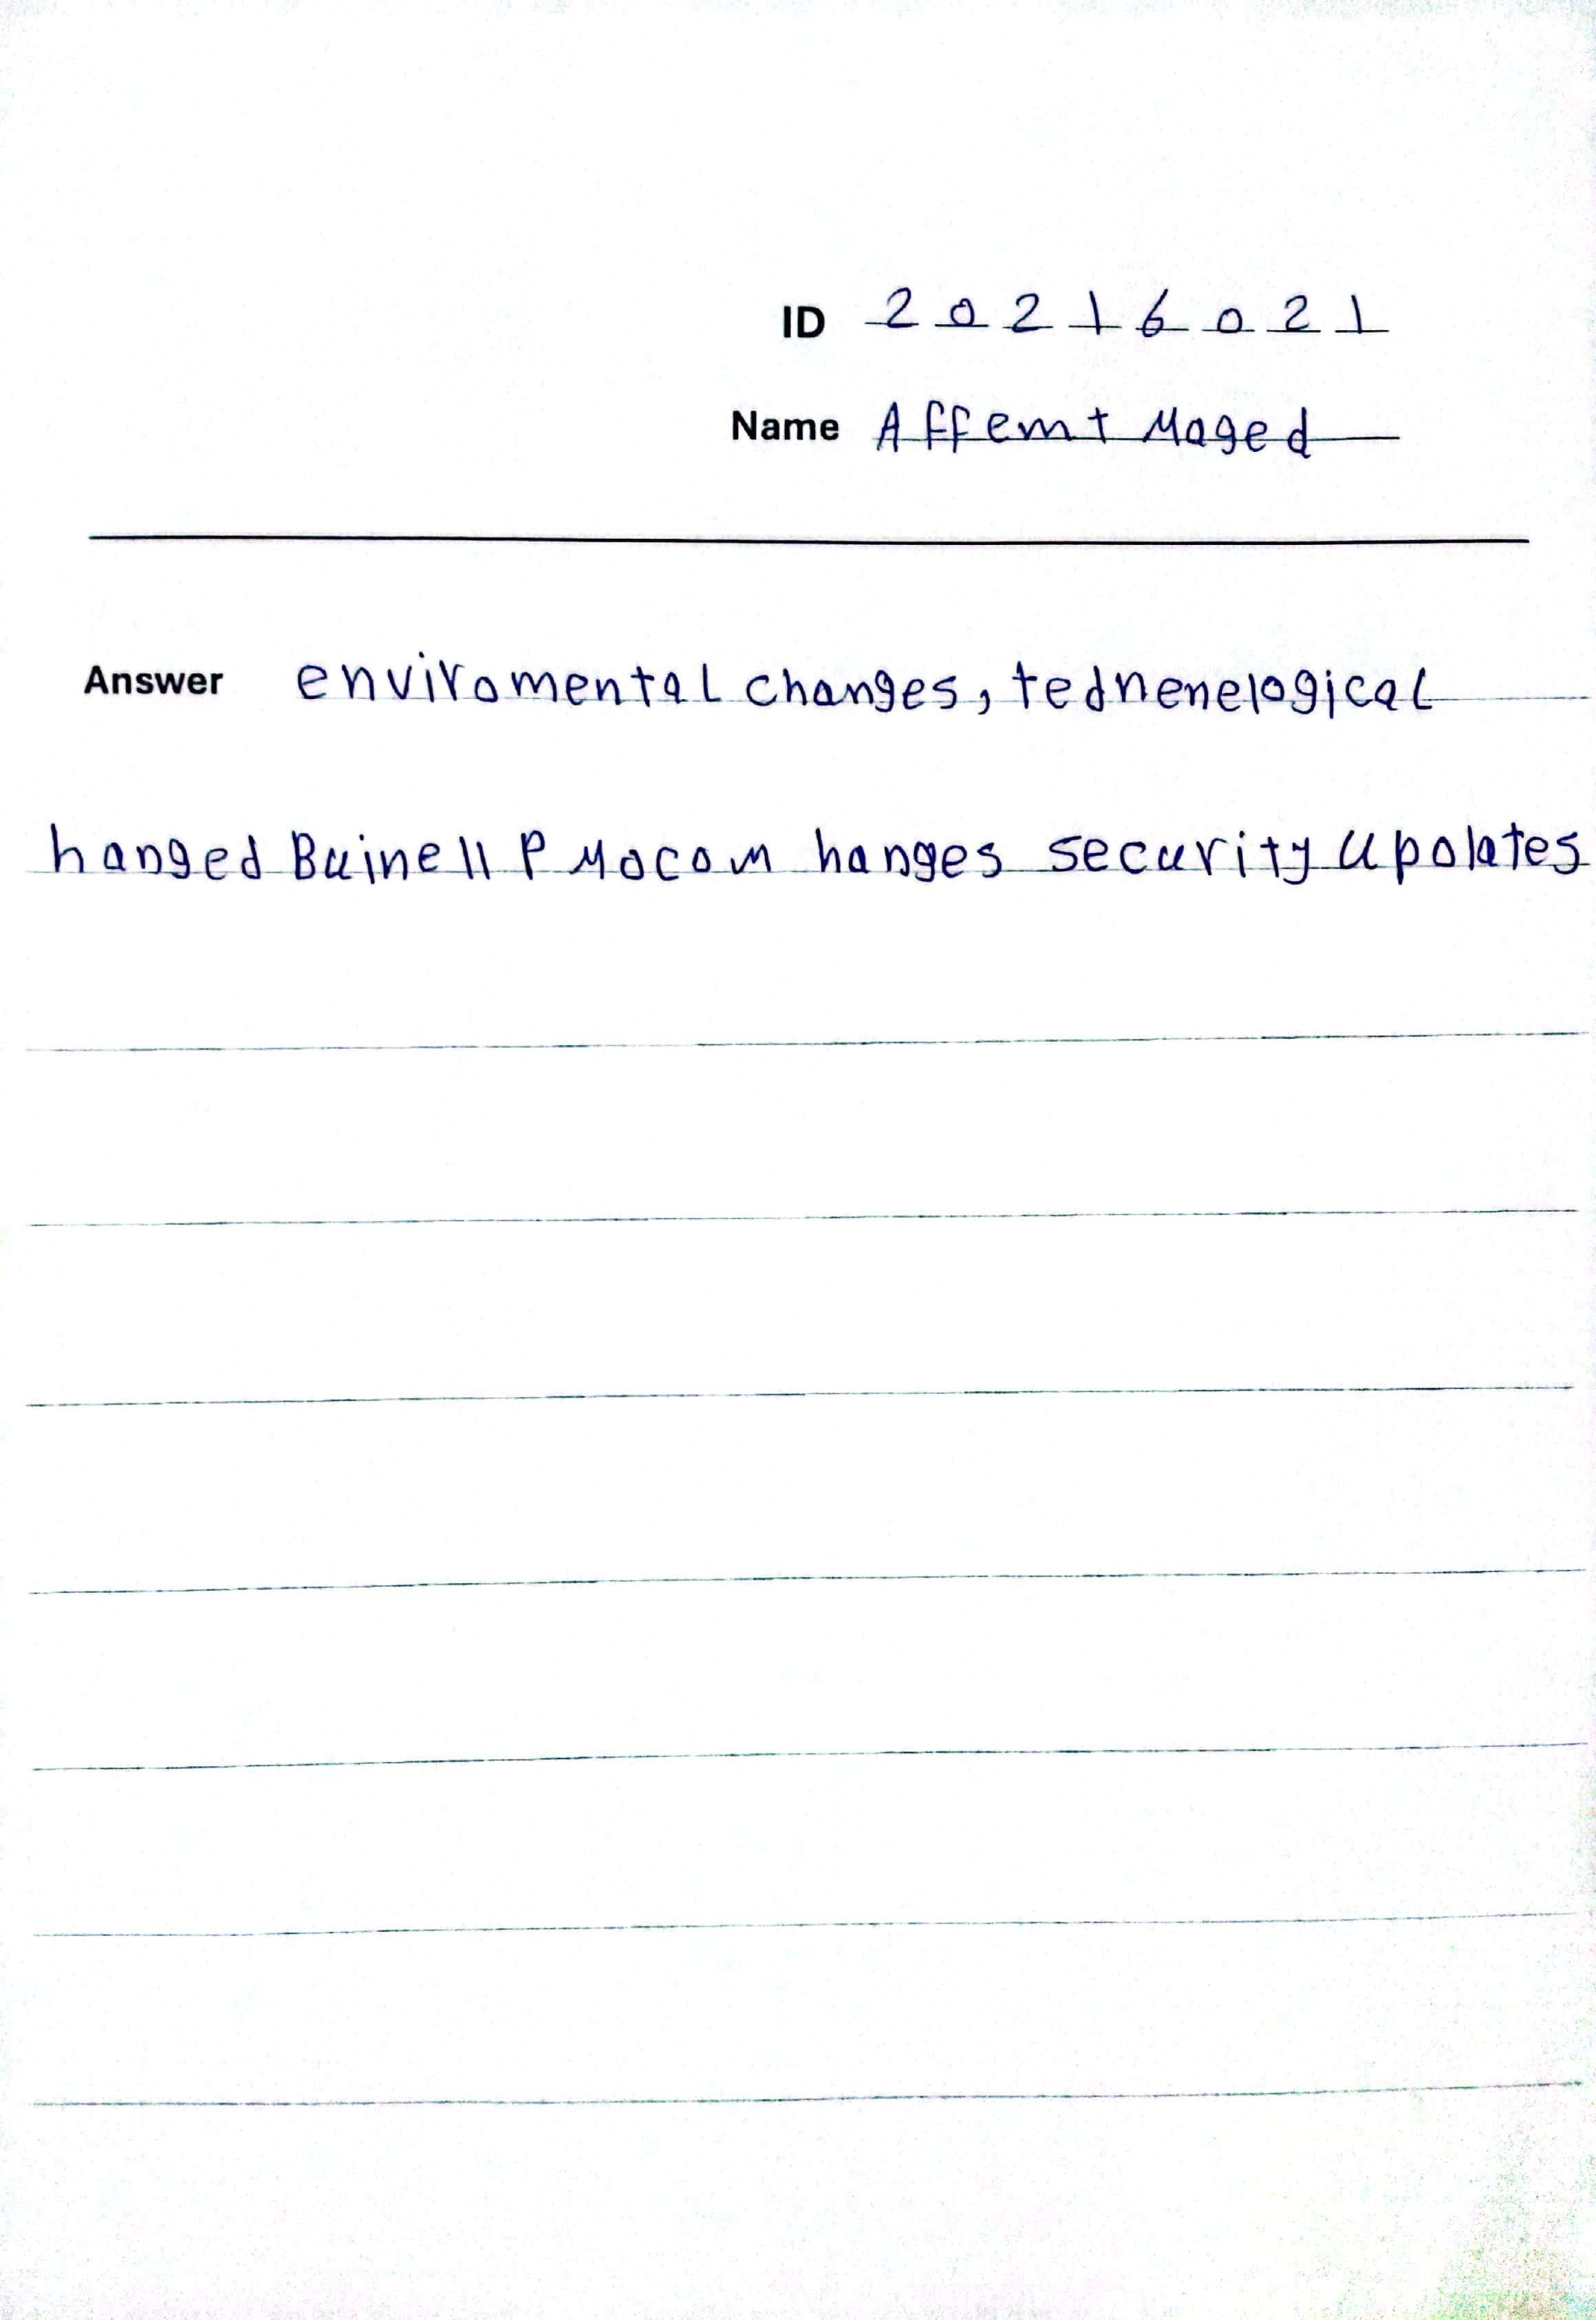 ID 20216021
Name Affemt Maged
Answer enviromental changes, tednenelogical
hanged Buinell P Mocom hanges security upolates